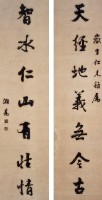 天經地義無今古
智水仁山有性情